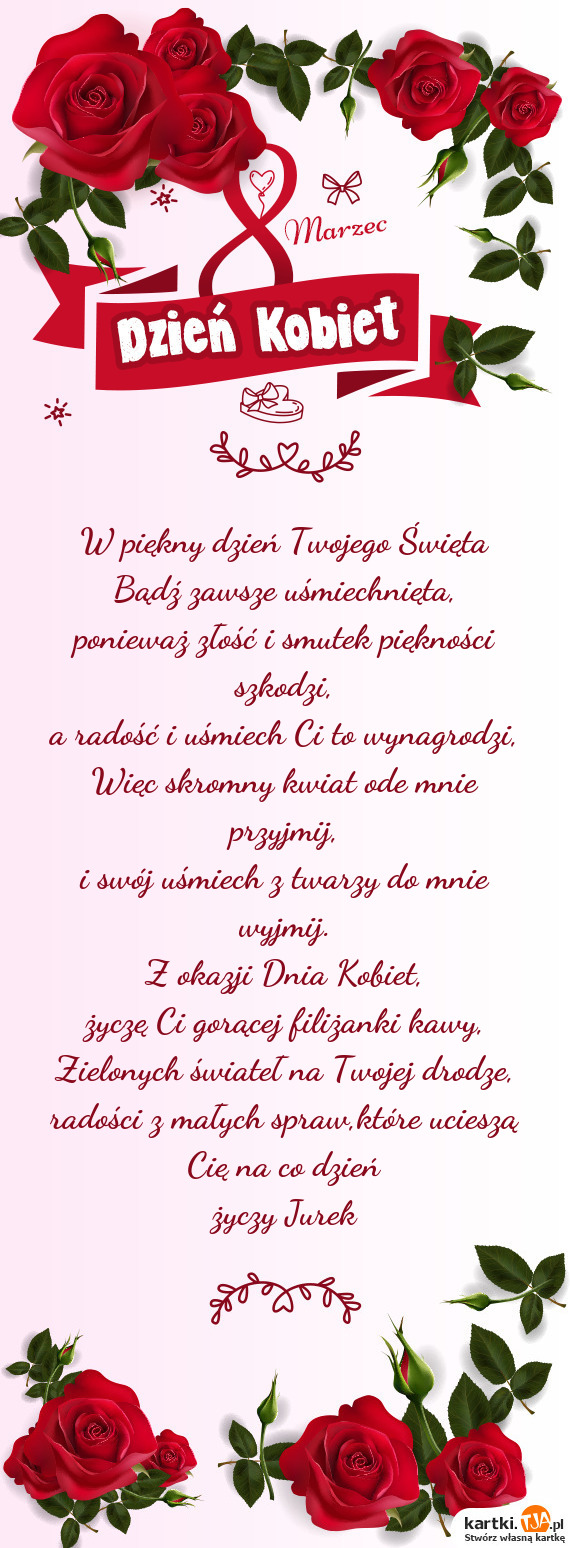 8 Marzec
Dzień Kobiet
W piękny dzień Twojego Święta
Bądź zawsze uśmiechnięta,
ponieważ złość i smutek piękności
szkodzi,
a radość i uśmiech Ci to wynagrodzi,
Więc skromny kwiat ode mnie
przyjmij,
i swój uśmiech z twarzy do mnie
wyjmij.
Z okazji Dnia Kobiet,
życzę Ci gorącej filiżanki kawy,
Zielonych świateł na Twojej drodze,
radości z małych spraw,które ucieszą
Cię na co dzień
życzy Jurek
kartki.TJA.pl
Stwórz własną kartkę